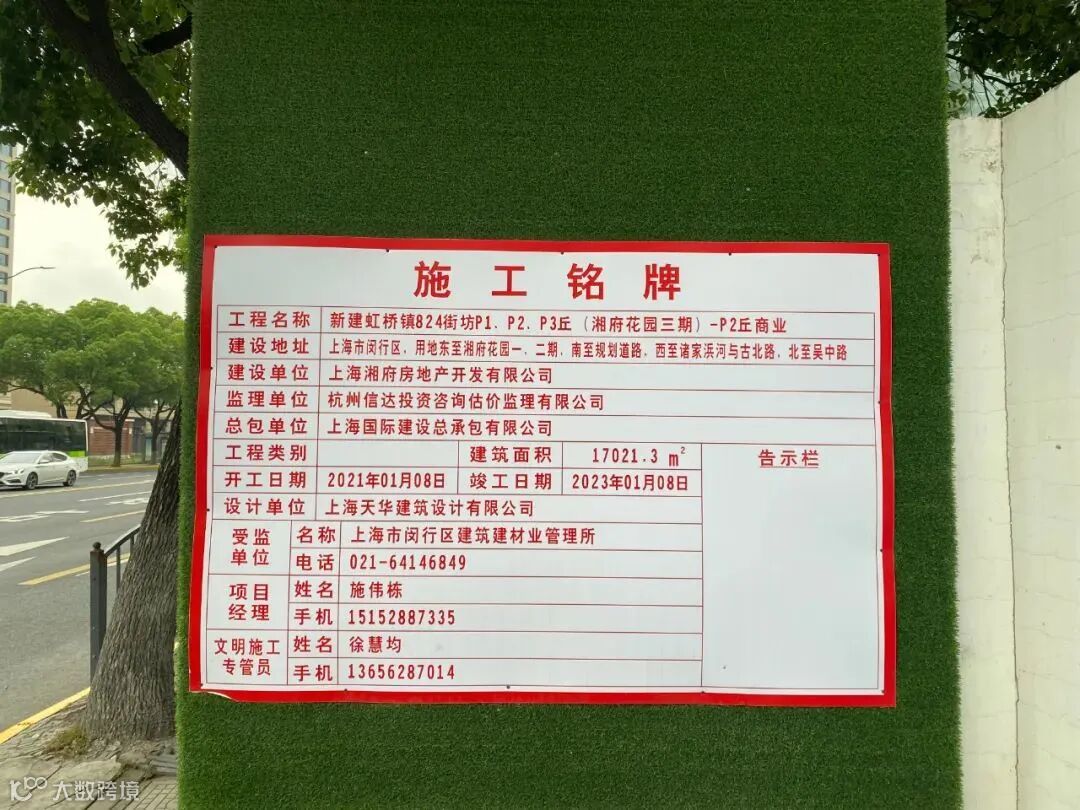 施工铭牌
工程名称 新建虹桥镇824街坊P1、P2、P3丘（湘府花园三期）-P2丘商业
建设地址 上海市闵行区，用地东至湘府花园一、二期，南至规划道路，西至诸家浜河与古北路，北至吴中路
建设单位 上海湘府房地产开发有限公司
监理单位 杭州信达投资咨询估价监理有限公司
总包单位 上海国际建设总承包有限公司
工程类别 建筑面积 17021.3 m²
告示栏
开工日期 2021年01月08日 竣工日期 2023年01月08日
设计单位 上海天华建筑设计有限公司
受监单位 名称 上海市闵行区建筑建材业管理所
电话 021-64146849
项目经理 姓名 施伟栋
手机 15152887335
文明施工专管员 姓名 徐慧均
手机 13656287014
大数跨境